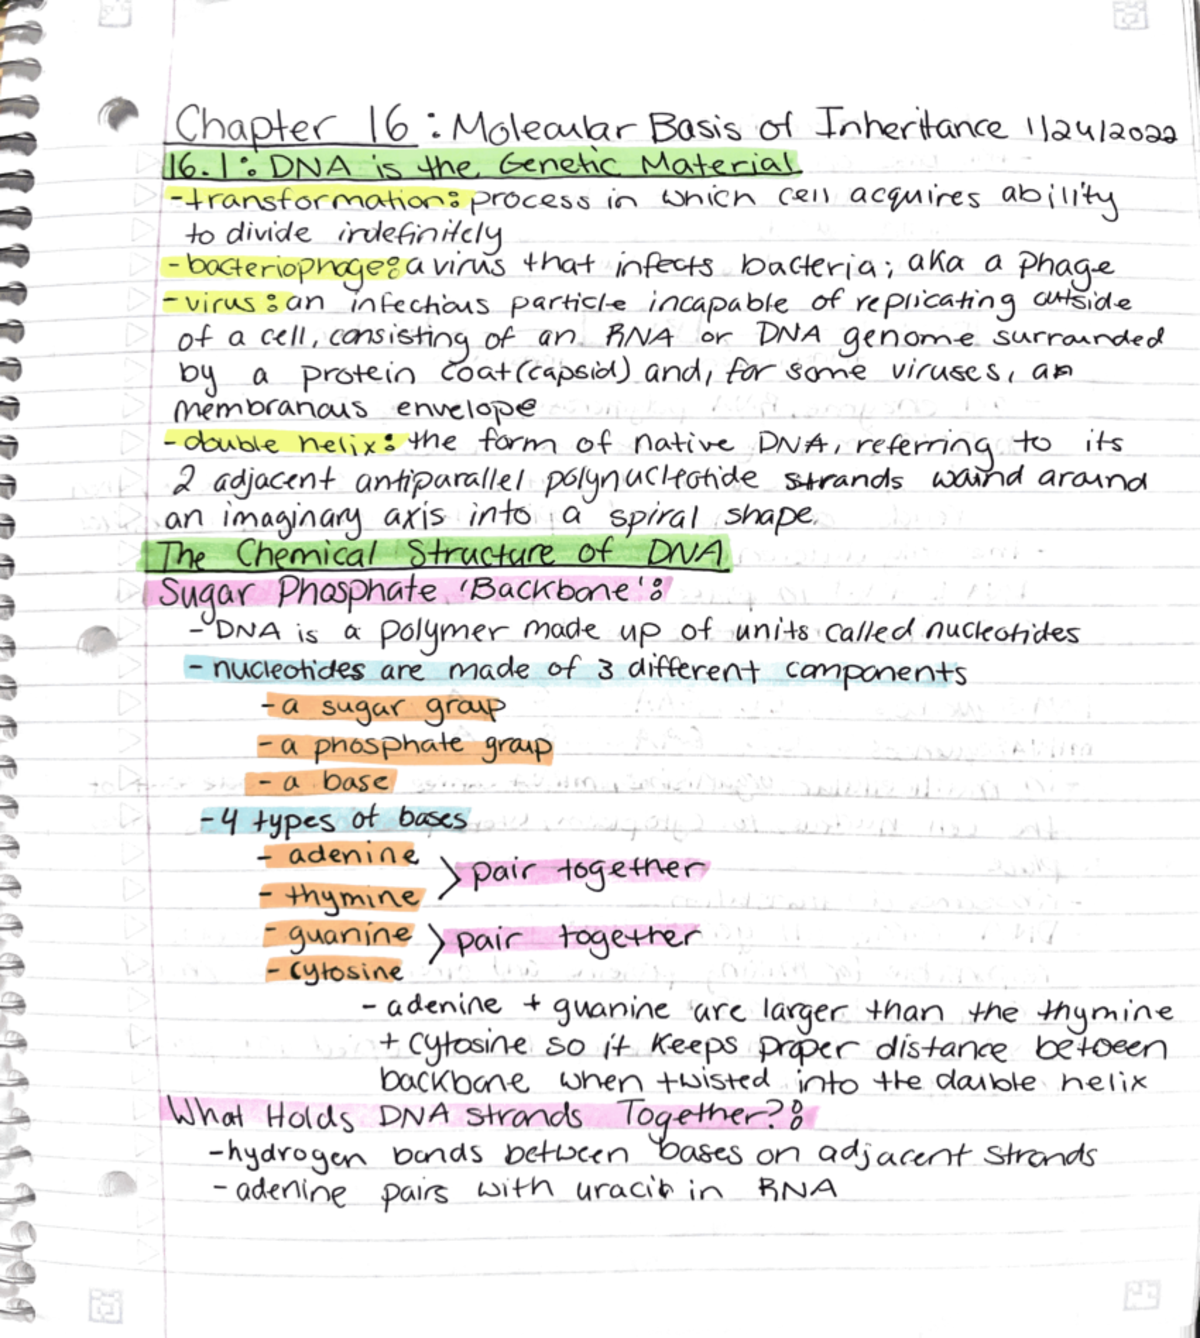 Chapter 16: Molecular Basis of Inheritance 1/24/2022
16.1: DNA is the Genetic Material
-transformation: process in which cell acquires ability
to divide indefinitely
-bacteriophage: a virus that infects bacteria; aka a phage
-virus: an infectious particle incapable of replicating outside
of a cell, consisting of an RNA or DNA genome surrounded
by a protein coat (capsid) and, for some viruses, an
membranous envelope
-double helix: the form of native DNA, referring to its
2 adjacent antiparallel polynucleotide strands wound around
an imaginary axis into a spiral shape.
The Chemical Structure of DNA
Sugar Phosphate 'Backbone':
-DNA is a polymer made up of units called nucleotides
-nucleotides are made of 3 different components
-a sugar group
-a phosphate group
-a base
-4 types of bases
-adenine
> pair together
-thymine
-guanine > pair together
-cytosine
-adenine + guanine are larger than the thymine
+ cytosine so it keeps proper distance between
backbone when twisted into the double helix
What Holds DNA Strands Together?:
-hydrogen bonds between bases on adjacent strands
-adenine pairs with uracil in RNA